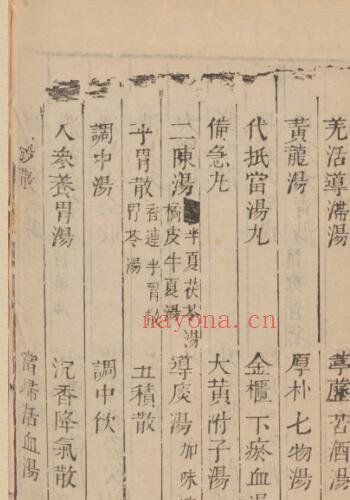 羌活導滯湯 葶藶苦酒湯
黃龍湯 厚朴七物湯
代抵當湯丸 金櫃下瘀血湯
備急丸 大黃附子湯
二陳湯 半夏茯苓湯 橘皮半夏湯 導痰湯 加味
平胃散 香連平胃散 胃苓湯 五積散
調中湯 調中飲
人參養胃湯 沉香降氣散
當歸活血湯
nayona.cn